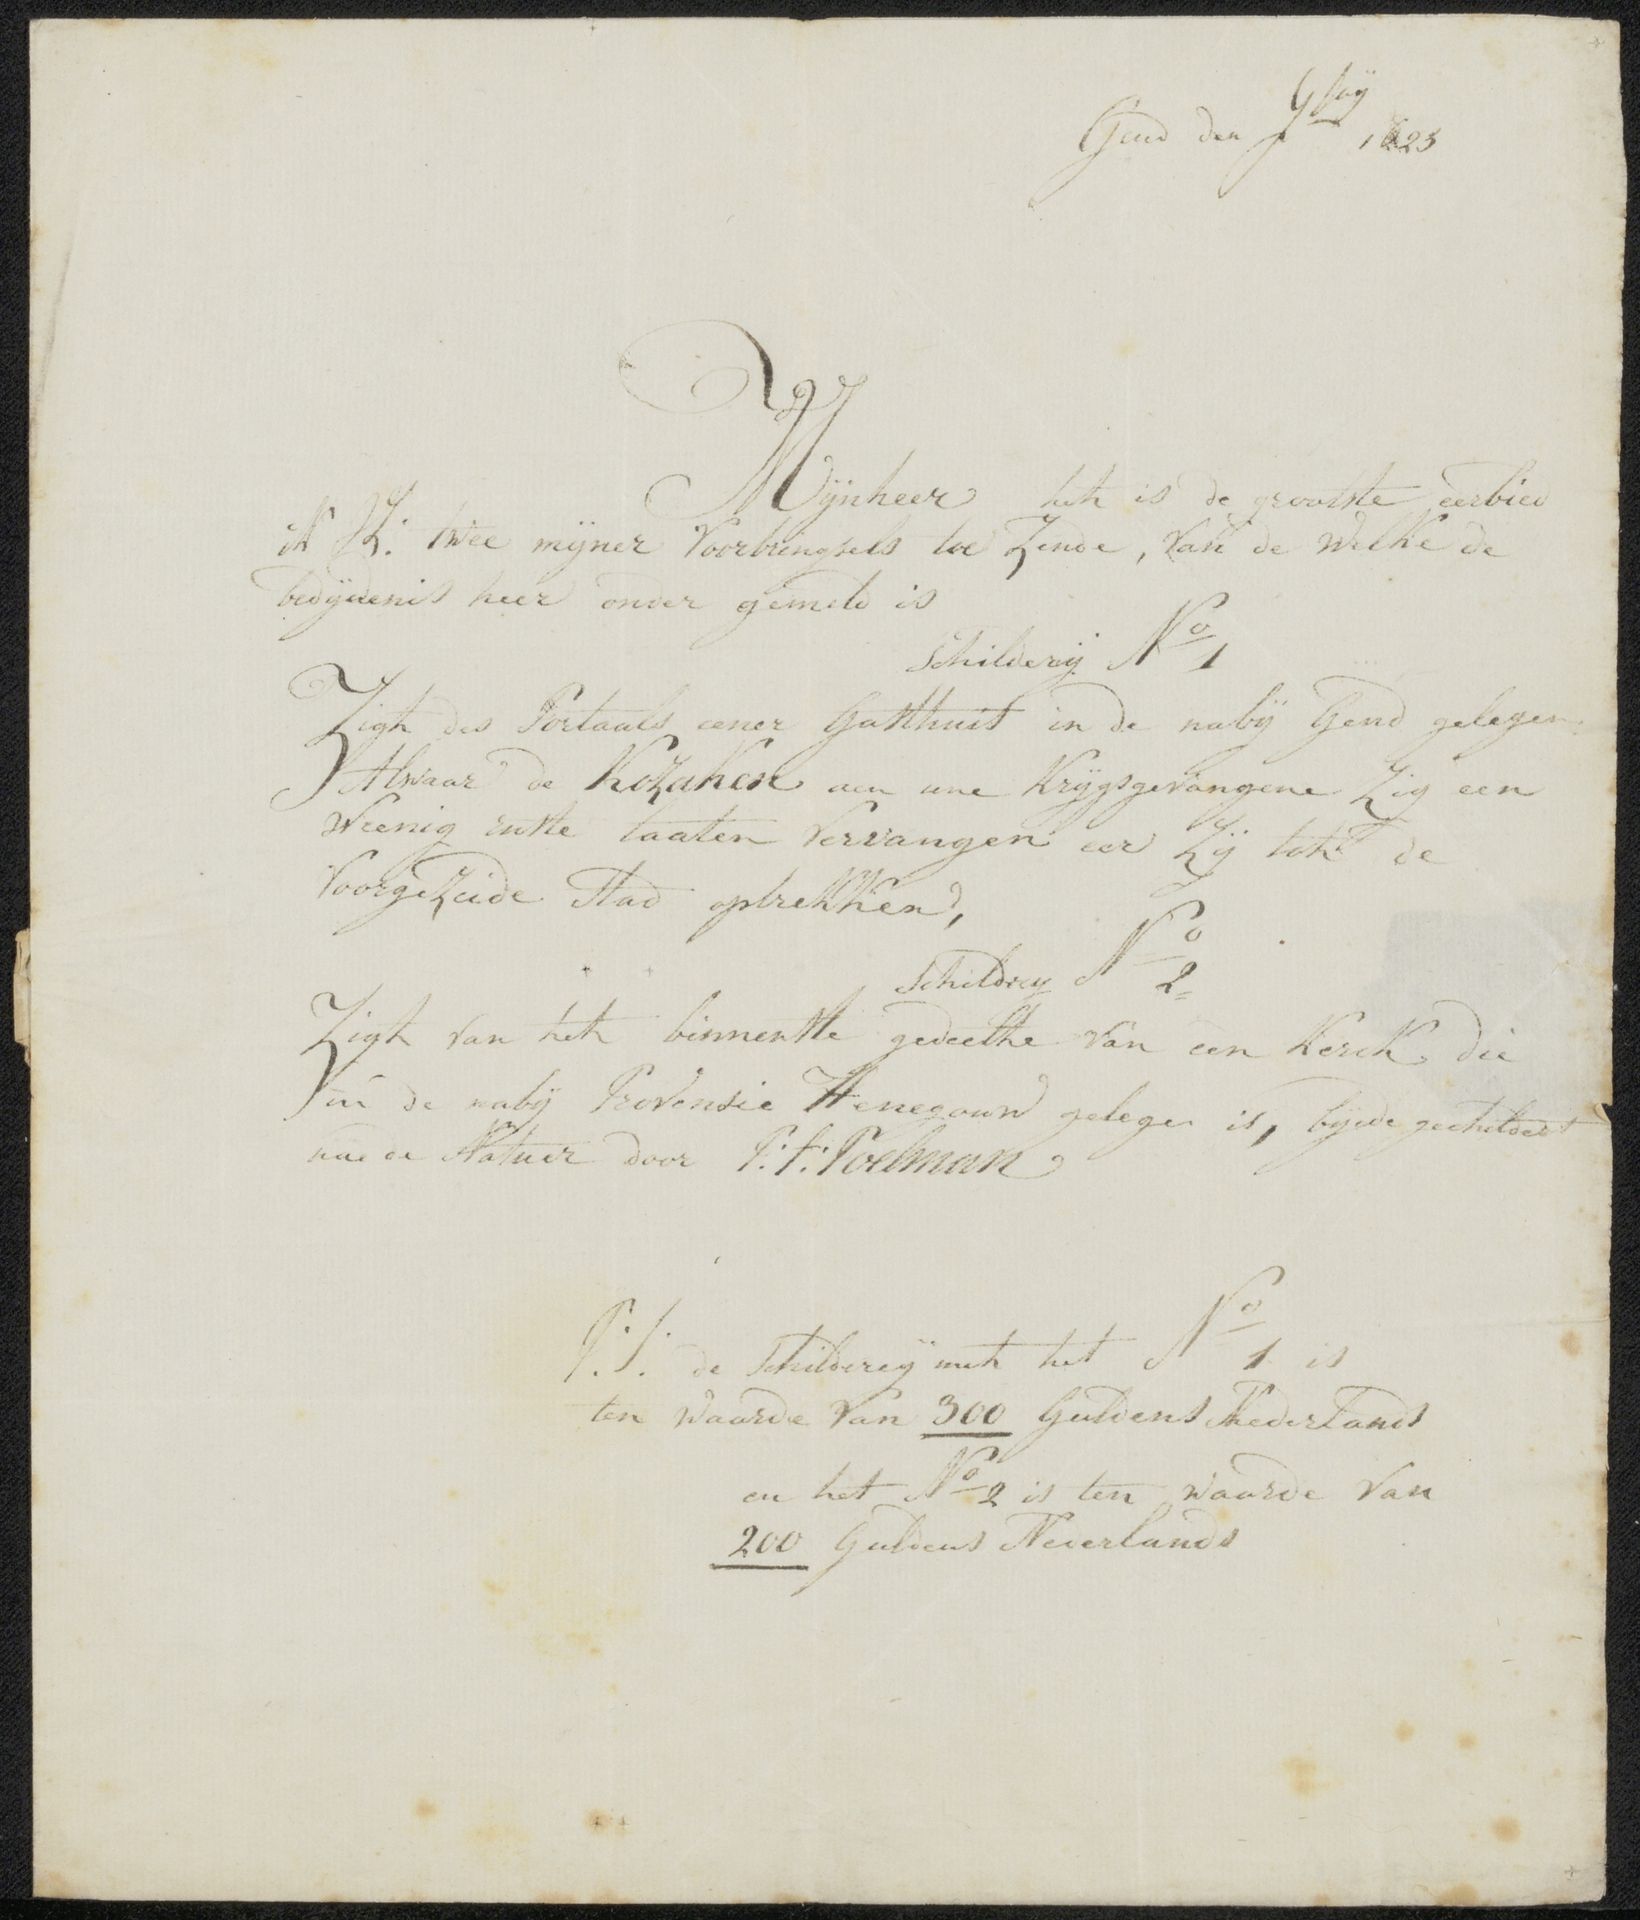 Gend den 1823
Mÿnheer heh is de grootste eerbied
ik twee mÿner Voorbringsels toe Zende, Van de Welke de
bedÿdenis heer onder gemeld is
Schilderÿ No 1
Zigh des Portaals eener Gasthuis in de nabÿ Gend gelegen
Alwaar de Kozaken Krÿgsgevangene Zig een
Weenig ruste laaten Vervangen eer Zÿ toh de
Voorgezeide Stad optrekken,
Schildrey No 2
Zigh Van heh binnenste gedeelthe Van een Kerck die
in de nabÿ Provensie Henegouw gelege is, bÿde geschildert
nae de Natuer door P: f: Poelman
P: S: de Schildereÿ meh het No 1 is
ten Waarde Van 300 Guldens Nederlands
en het No 2 is ten Waarde Van
200 Guldens Nederlands